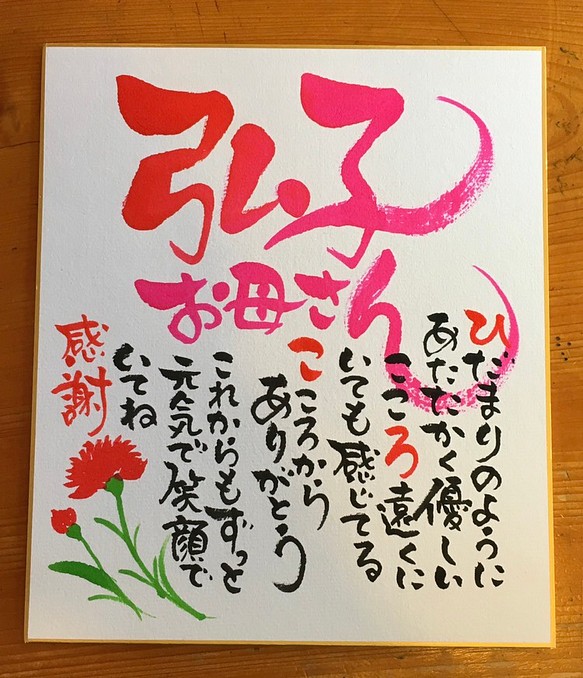 弘子
お母さん
ひだまりのように
あたたかく優しい
こころ遠くに
いても感じてる
こころから
ありがとう
これからもずっと
元気で笑顔で
いてね
感謝